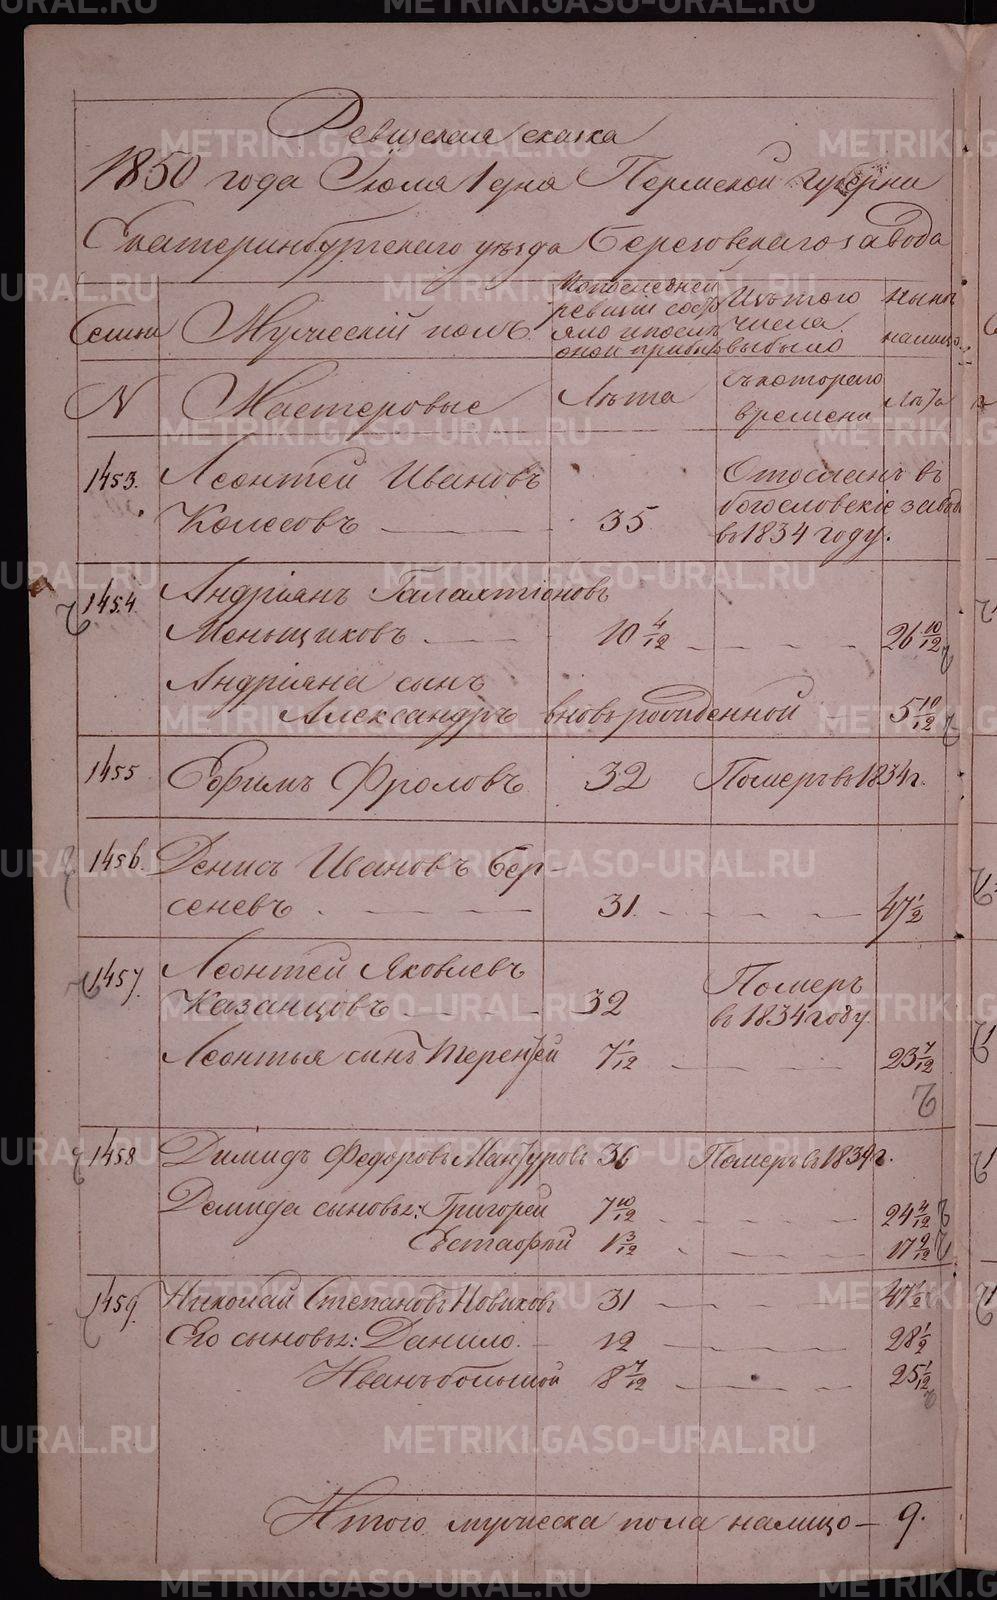 Ревизская сказка
1850 года Июля 1 дня Пермской губерни
Екатеринбургскаго уѣзда Березовскаго завода
Семьи
Мужескій полъ
По последней ревизіи состояло и послѣ оной прибыло
Изъ того числа выбыло
Нынѣ налицо
N
Мастеровые
Лѣта
Съ котораго времени
Лѣта
1453. Леонтей Ивановъ
Колесовъ 35 Отосланъ въ богословскіе заводы въ 1834 году.
1454 Андріянъ Галактіоновъ
Меньщиковъ 10 4/12 26 10/12
Андріяна сынъ
Александръ вновьрожденной 5 10/12
1455 Ефимъ Фроловъ 32 Померъ въ 1834 г.
1456. Денисъ Ивановъ Бер-
сеневъ 31 47 1/2
1457. Леонтей Яковлевъ
Казанцовъ 32 Померъ въ 1834 году
Леонтья сынъ Терентей 7 1/12 23 7/12
1458 Димидъ Федоровъ Мантуровъ 36 Померъ въ 1839 г.
Демида сыновья: Григорей 7 10/12 24 4/12
Евстафей 1 3/12 17 9/12
1459. Николай Степановъ Новиковъ 31 47 1/2
Его сыновья: Данило 12 28 1/2
Иванъ большой 8 7/12 25 1/12
Итого мужеска пола налицо — 9.
METRIKI.GASO-URAL.RU